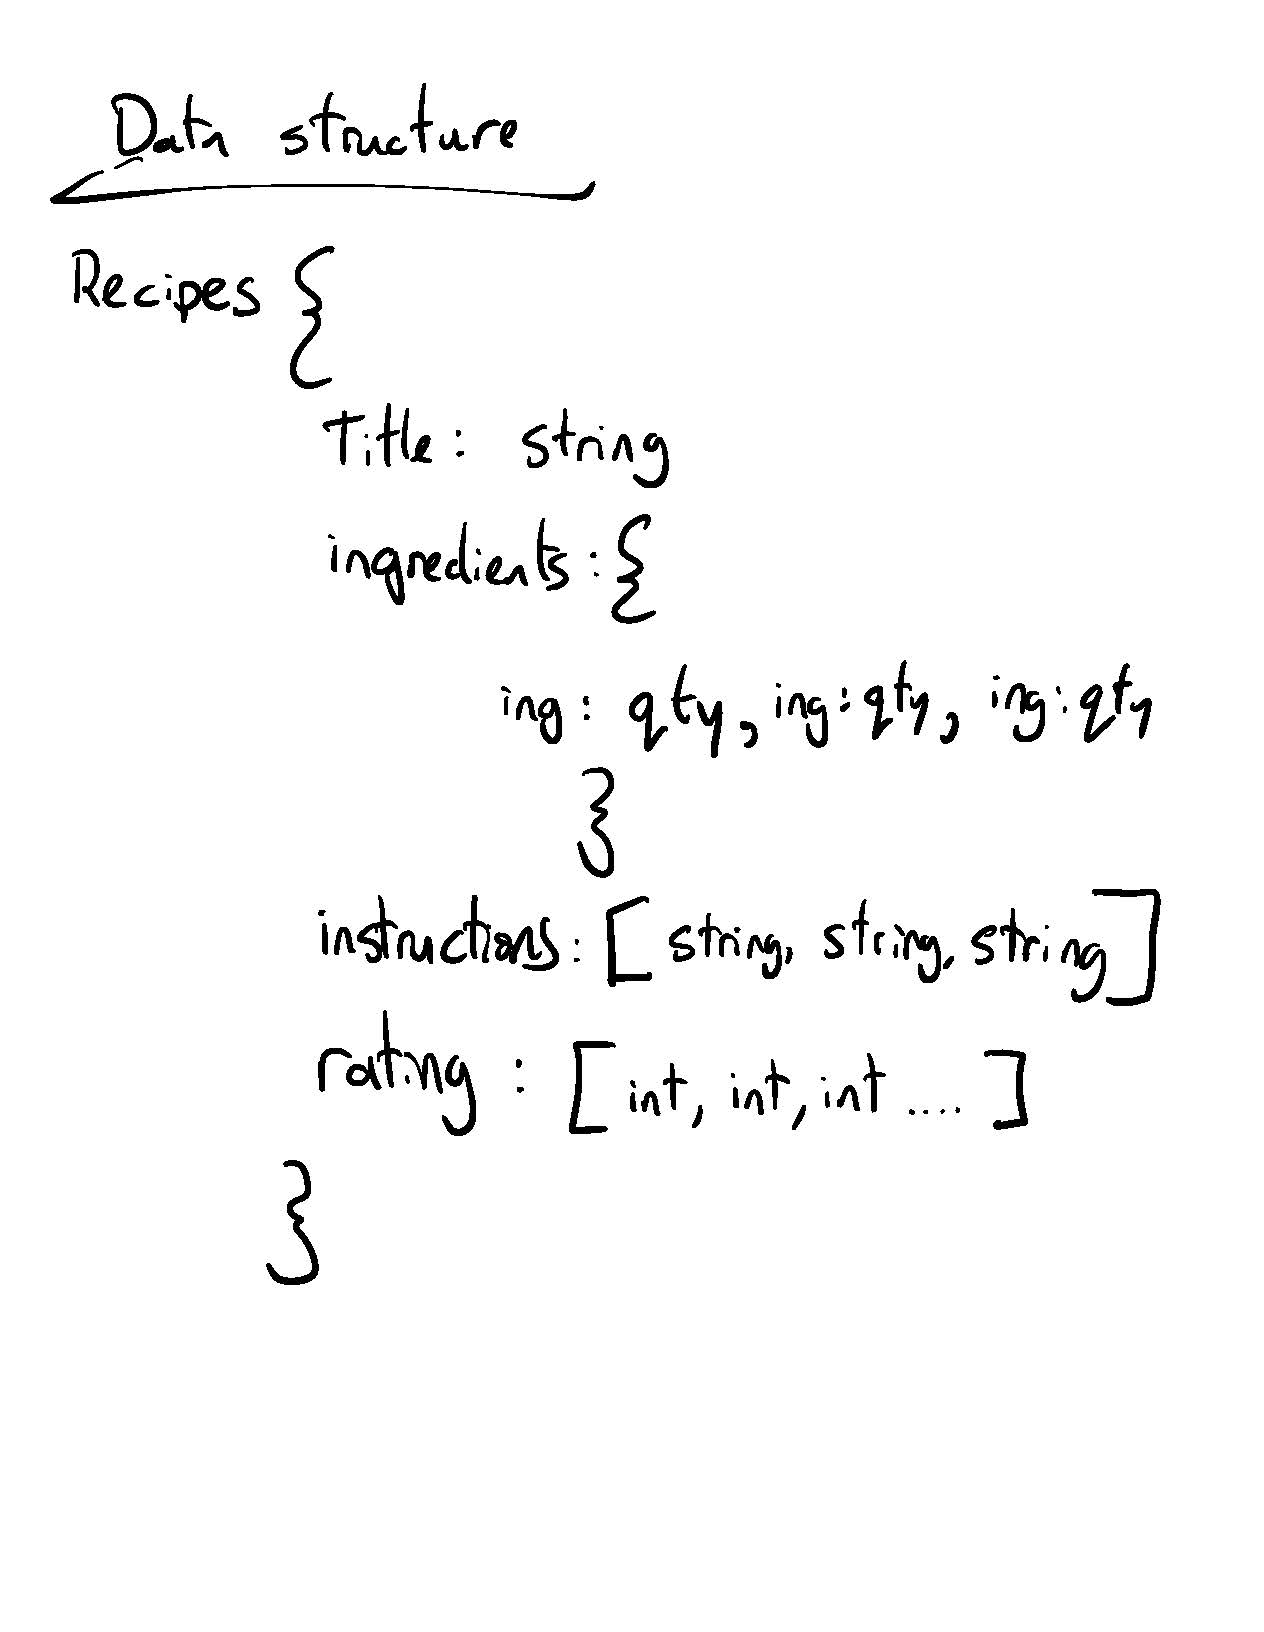 Data structure
Recipes {
Title: string
ingredients: {
ing: qty, ing: qty, ing: qty
}
instructions: [string, string, string]
rating: [int, int, int ....]
}